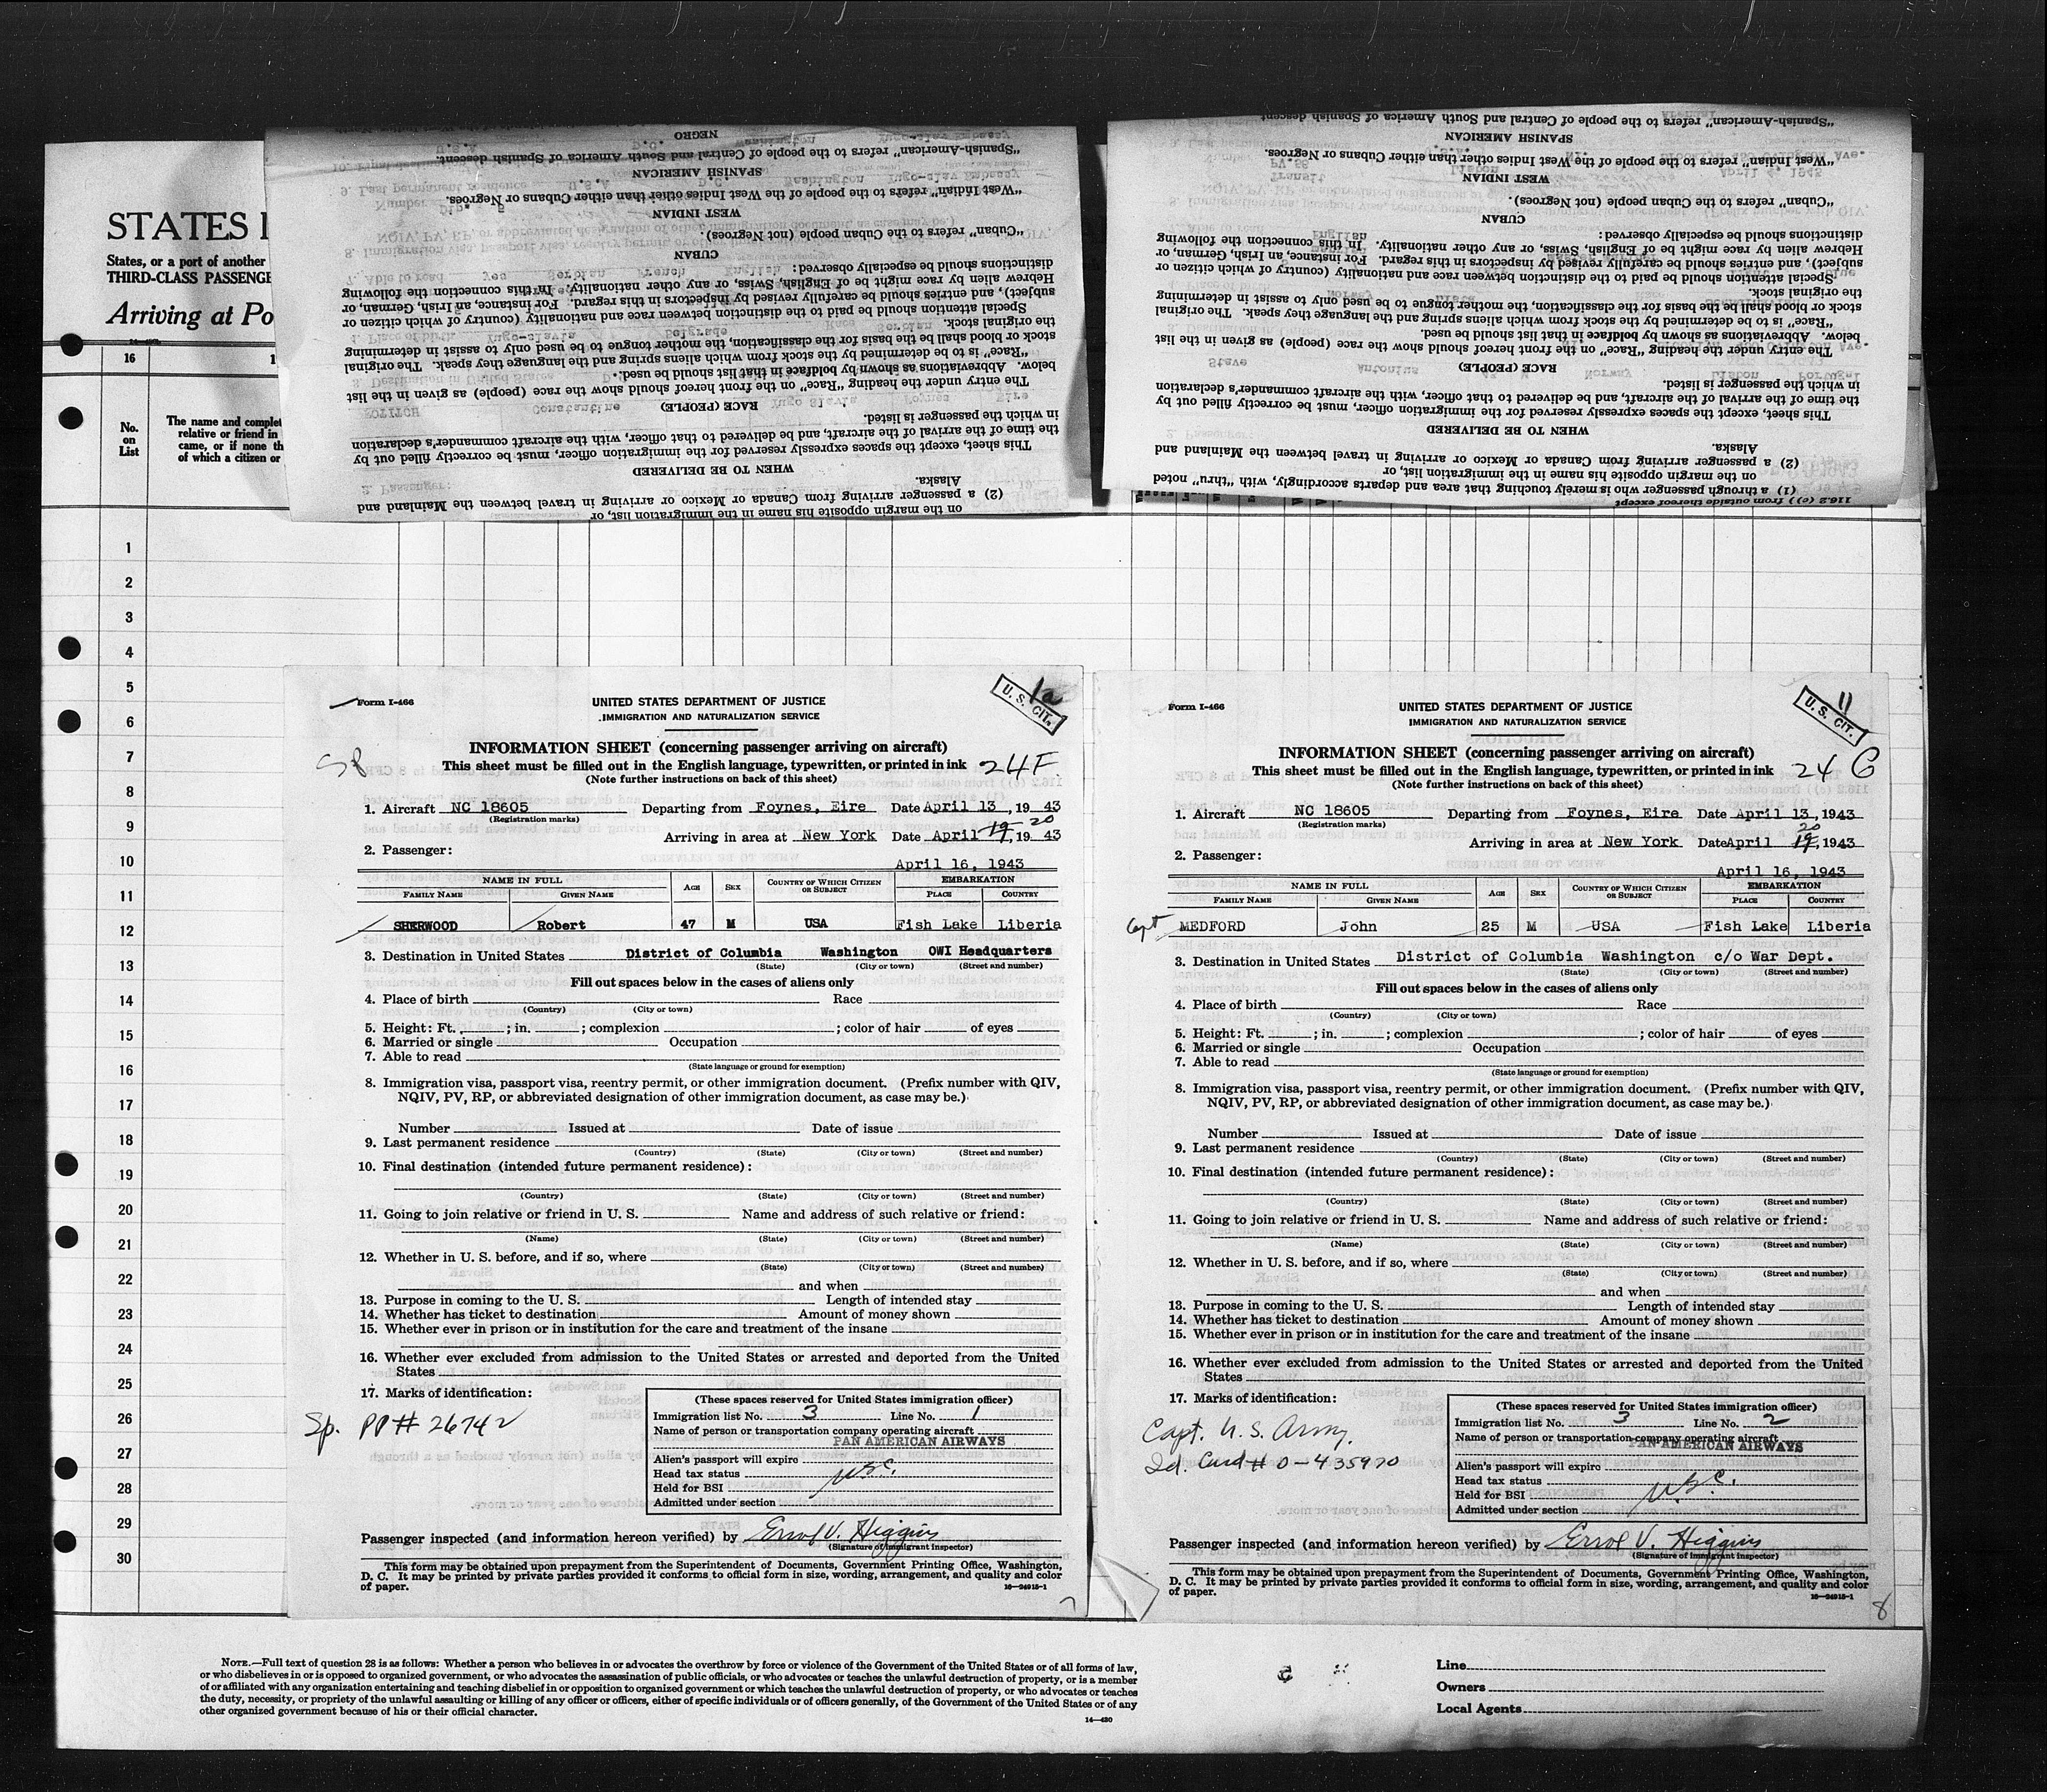 STATES
States, or a port of another
THIRD-CLASS PASSENGE
Arriving at Po
16
No.
on
List
The name and complet
relative or friend in
came, or if none th
of which a citizen or
1
2
3
4
5
6
7
8
9
10
11
12
13
14
15
16
17
18
19
20
21
22
23
24
25
26
27
28
29
30
(2) a passenger arriving from Canada or Mexico or arriving in travel between the Mainland and
Alaska.
on the margin opposite his name in the immigration list, or
WHEN TO BE DELIVERED
This sheet, except the spaces expressly reserved for the immigration officer, must be correctly filled out by
the time of the arrival of the aircraft, and be delivered to that officer, with the aircraft commander's declaration
in which the passenger is listed.
RACE (PEOPLE)
The entry under the heading "Race" on the front hereof should show the race (people) as given in the list
below. Abbreviations as shown by boldface in that list should be used.
"Race" is to be determined by the stock from which aliens spring and the language they speak. The original
stock or blood shall be the basis for the classification, the mother tongue to be used only to assist in determining
the original stock.
Special attention should be paid to the distinction between race and nationality (country of which citizen or
subject), and entries should be carefully revised by inspectors in this regard. For instance, an Irish, German, or
Hebrew alien by race might be of English, Swiss, or any other nationality. In this connection the following
distinctions should be especially observed:
CUBAN
"Cuban" refers to the Cuban people (not Negroes).
WEST INDIAN
"West Indian" refers to the people of the West Indies other than either Cubans or Negroes.
SPANISH AMERICAN
"Spanish-American" refers to the people of Central and South America of Spanish descent.
NEGRO
116.2 (c) ) from outside thereof except
(1) a through passenger who is merely touching that area and departs accordingly, with "thru" noted
on the margin opposite his name in the immigration list, or
(2) a passenger arriving from Canada or Mexico or arriving in travel between the Mainland and
Alaska.
WHEN TO BE DELIVERED
This sheet, except the spaces expressly reserved for the immigration officer, must be correctly filled out by
the time of the arrival of the aircraft, and be delivered to that officer, with the aircraft commander's declaration
in which the passenger is listed.
RACE (PEOPLE)
The entry under the heading "Race" on the front hereof should show the race (people) as given in the list
below. Abbreviations as shown by boldface in that list should be used.
"Race" is to be determined by the stock from which aliens spring and the language they speak. The original
stock or blood shall be the basis for the classification, the mother tongue to be used only to assist in determining
the original stock.
Special attention should be paid to the distinction between race and nationality (country of which citizen or
subject), and entries should be carefully revised by inspectors in this regard. For instance, an Irish, German, or
Hebrew alien by race might be of English, Swiss, or any other nationality. In this connection the following
distinctions should be especially observed:
CUBAN
"Cuban" refers to the Cuban people (not Negroes).
WEST INDIAN
"West Indian" refers to the people of the West Indies other than either Cubans or Negroes.
SPANISH AMERICAN
"Spanish-American" refers to the people of Central and South America of Spanish descent
Form I-466
UNITED STATES DEPARTMENT OF JUSTICE
IMMIGRATION AND NATURALIZATION SERVICE
1a
U. S. CIT.
INFORMATION SHEET (concerning passenger arriving on aircraft)
This sheet must be filled out in the English language, typewritten, or printed in ink 24F
(Note further instructions on back of this sheet)
Sp
1. Aircraft NC 18605 Departing from Foynes, Eire Date April 13, 1943
(Registration marks)
Arriving in area at New York Date April 19 20 1943
2. Passenger:
April 16, 1943
NAME IN FULL AGE SEX COUNTRY OF WHICH CITIZEN OR SUBJECT EMBARKATION
FAMILY NAME GIVEN NAME PLACE COUNTRY
SHERWOOD Robert 47 M USA Fish Lake Liberia
3. Destination in United States District of Columbia Washington OWI Headquarters
(State) (City or town) (Street and number)
Fill out spaces below in the cases of aliens only
4. Place of birth Race
(Country) (City or town)
5. Height: Ft. ; in. ; complexion ; color of hair of eyes
6. Married or single Occupation
7. Able to read
(State language or ground for exemption)
8. Immigration visa, passport visa, reentry permit, or other immigration document. (Prefix number with QIV,
NQIV, PV, RP, or abbreviated designation of other immigration document, as case may be.)
Number Issued at Date of issue
9. Last permanent residence
(Country) (State) (City or town) (Street and number)
10. Final destination (intended future permanent residence):
(Country) (State) (City or town) (Street and number)
11. Going to join relative or friend in U. S. Name and address of such relative or friend:
(Name) (State) (City or town) (Street and number)
12. Whether in U. S. before, and if so, where
(State) (City or town) (Street and number)
and when
13. Purpose in coming to the U. S. Length of intended stay
14. Whether has ticket to destination Amount of money shown
15. Whether ever in prison or in institution for the care and treatment of the insane
16. Whether ever excluded from admission to the United States or arrested and deported from the United
States
17. Marks of identification:
Sp. PP# 26742
(These spaces reserved for United States immigration officer)
Immigration list No. 3 Line No. 1
Name of person or transportation company operating aircraft
PAN AMERICAN AIRWAYS
Alien's passport will expire
Head tax status USC.
Held for BSI
Admitted under section
Passenger inspected (and information hereon verified) by Errol V. Higgins
(Signature of immigrant inspector)
This form may be obtained upon prepayment from the Superintendent of Documents, Government Printing Office, Washington,
D. C. It may be printed by private parties provided it conforms to official form in size, wording, arrangement, and quality and color
of paper.
16—24915-1
7
Form I-466
UNITED STATES DEPARTMENT OF JUSTICE
IMMIGRATION AND NATURALIZATION SERVICE
11
U. S. CIT.
INFORMATION SHEET (concerning passenger arriving on aircraft)
This sheet must be filled out in the English language, typewritten, or printed in ink 24 G
(Note further instructions on back of this sheet)
1. Aircraft NC 18605 Departing from Foynes, Eire Date April 13, 1943
(Registration marks)
Arriving in area at New York Date April 19 20, 1943
2. Passenger:
April 16, 1943
NAME IN FULL AGE SEX COUNTRY OF WHICH CITIZEN OR SUBJECT EMBARKATION
FAMILY NAME GIVEN NAME PLACE COUNTRY
Capt MEDFORD John 25 M USA Fish Lake Liberia
3. Destination in United States District of Columbia Washington c/o War Dept.
(State) (City or town) (Street and number)
Fill out spaces below in the cases of aliens only
4. Place of birth Race
(Country) (City or town)
5. Height: Ft. ; in. ; complexion ; color of hair of eyes
6. Married or single Occupation
7. Able to read
(State language or ground for exemption)
8. Immigration visa, passport visa, reentry permit, or other immigration document. (Prefix number with QIV,
NQIV, PV, RP, or abbreviated designation of other immigration document, as case may be.)
Number Issued at Date of issue
9. Last permanent residence
(Country) (State) (City or town) (Street and number)
10. Final destination (intended future permanent residence):
(Country) (State) (City or town) (Street and number)
11. Going to join relative or friend in U. S. Name and address of such relative or friend:
(Name) (State) (City or town) (Street and number)
12. Whether in U. S. before, and if so, where
(State) (City or town) (Street and number)
and when
13. Purpose in coming to the U. S. Length of intended stay
14. Whether has ticket to destination Amount of money shown
15. Whether ever in prison or in institution for the care and treatment of the insane
16. Whether ever excluded from admission to the United States or arrested and deported from the United
States
17. Marks of identification:
Capt. U. S. Army.
Id. Card # O-435970
(These spaces reserved for United States immigration officer)
Immigration list No. 3 Line No. 2
Name of person or transportation company operating aircraft
PAN AMERICAN AIRWAYS
Alien's passport will expire
Head tax status U.S.C.
Held for BSI
Admitted under section
Passenger inspected (and information hereon verified) by Errol V. Higgins
(Signature of immigrant inspector)
This form may be obtained upon prepayment from the Superintendent of Documents, Government Printing Office, Washington,
D. C. It may be printed by private parties provided it conforms to official form in size, wording, arrangement, and quality and color
of paper.
16—24915-1
8
NOTE.—Full text of question 28 is as follows: Whether a person who believes in or advocates the overthrow by force or violence of the Government of the United States or of all forms of law,
or who disbelieves in or is opposed to organized government, or who advocates the assassination of public officials, or who advocates or teaches the unlawful destruction of property, or is a member
of or affiliated with any organization entertaining and teaching disbelief in or opposition to organized government or which teaches the unlawful destruction of property, or who advocates or teaches
the duty, necessity, or propriety of the unlawful assaulting or killing of any officer or officers, either of specific individuals or of officers generally, of the Government of the United States or of any
other organized government because of his or their official character.
14—430
Line
Owners
Local Agents